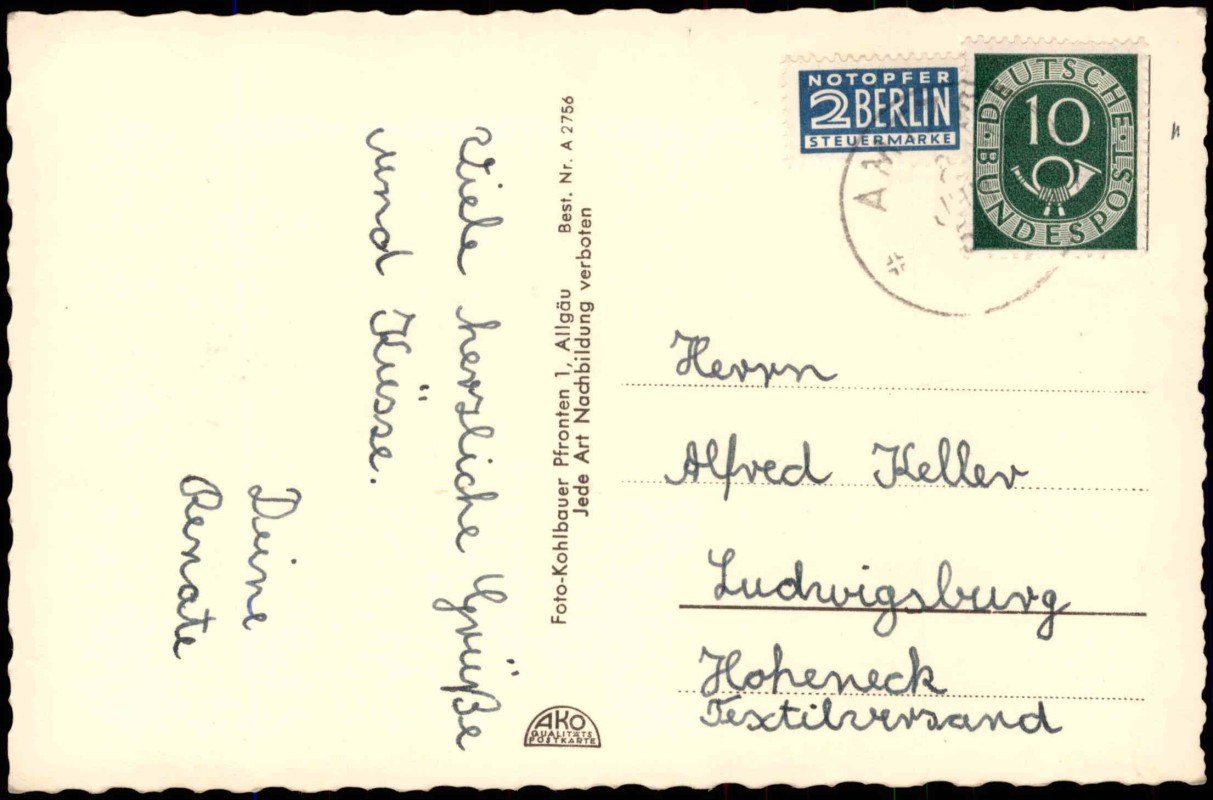 Viele herzliche Grüße
und Küsse.
Deine
Renate
Foto-Kohlbauer Pfronten 1, Allgäu Best. Nr. A 2756
Jede Art Nachbildung verboten
AKO
QUALITÄTS
POSTKARTE
NOTOPFER
2 BERLIN
STEUERMARKE
DEUTSCHE
BUNDESPOST
10
Herrn
Alfred Keller
Ludwigsburg
Hoheneck
Textilversand